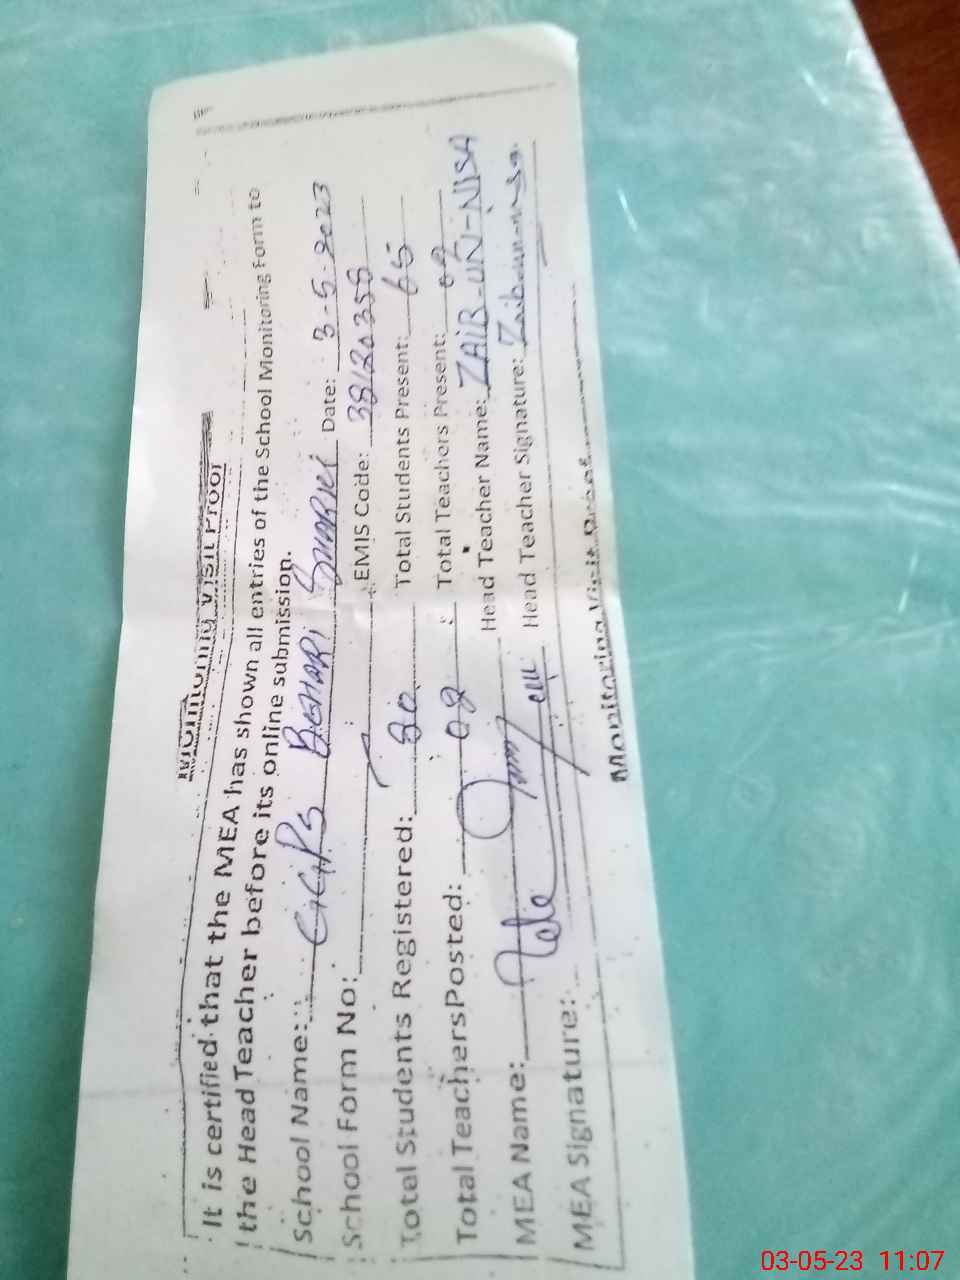 Monitoring Visit Proof
It is certified that the MEA has shown all entries of the School Monitoring Form to
the Head Teacher before its online submission.
School Name: GGPS BEHARI SHARKI Date: 3-5-2023
School Form No: EMIS Code: 38120358
Total Students Registered: 80 Total Students Present: 65
Total Teachers Posted: 02 Total Teachers Present: 02
MEA Name: Head Teacher Name: ZAIB-UN-NISA
MEA Signature: Head Teacher Signature: Zaib-un-nisa.
Monitoring Visit Proof
03-05-23 11:07